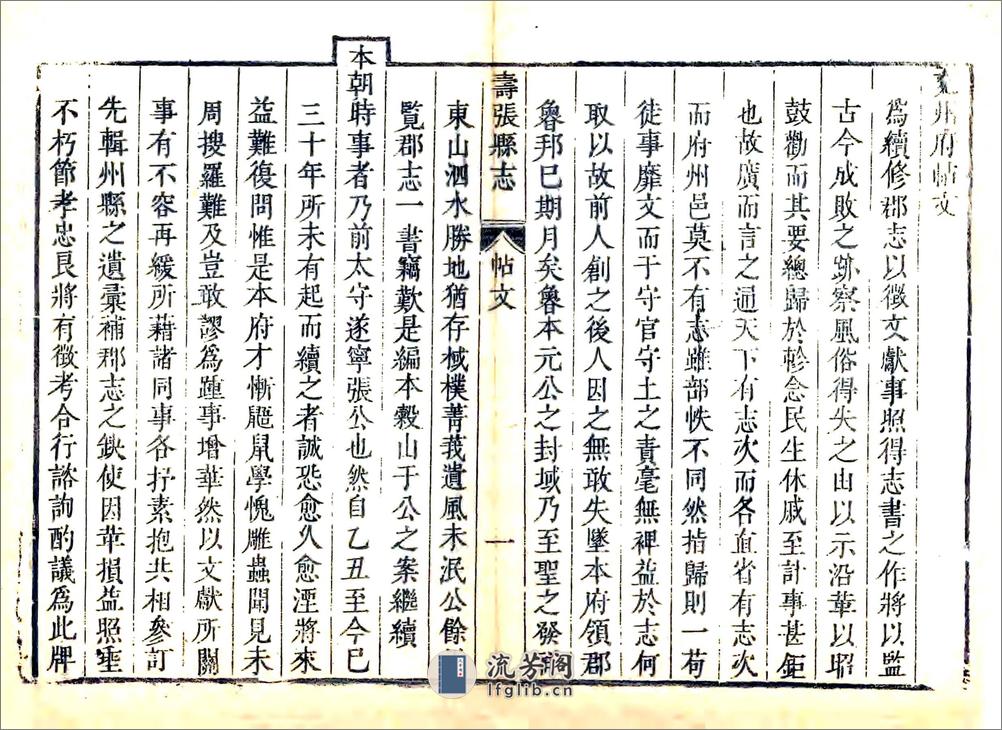 兗州府帖文
為續修郡志以徵文獻事照得志書之作將以監
古今成敗之跡察風俗得失之由以示沿革以昭
鼓勸而其要總歸於軫念民生休戚至計事甚鉅
也故廣而言之通天下有志次而各直省有志次
而府州邑莫不有志雖部帙不同然指歸則一苟
徒事靡文而于守官守土之責毫無裨益於志何
取以故前人創之後人因之無敢失墜本府領郡
魯邦已期月矣魯本元公之封域乃至聖之發
壽張縣志
帖文
一
東山泗水勝地猶存棫樸菁莪遺風未泯公餘
覽郡志一書竊歎是編本穀山于公之案繼續
本朝時事者乃前太守遂寧張公也然自乙丑至今已
三十年所未有起而續之者誠恐愈久愈湮將來
益難復問惟是本府才慚鼯鼠學愧雕蟲聞見未
周搜羅難及豈敢謬為踵事增華然以文獻所關
事有不容再緩所藉諸同事各抒素抱共相參訂
先輯州縣之遺彙補郡志之缺使因革損益照垂
不朽節孝忠良將有徵考合行諮詢酌議為此牌
流芳閣
lfglib.cn